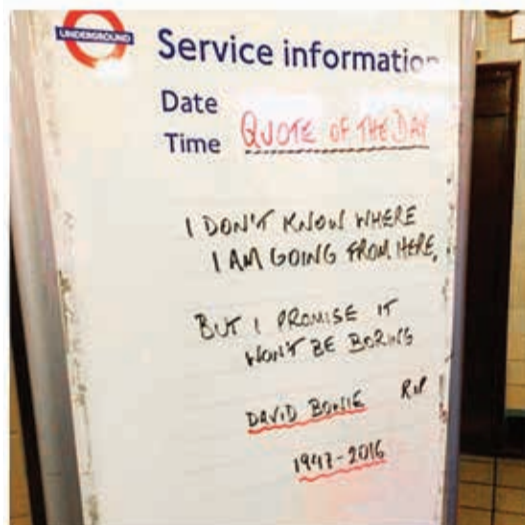 UNDERGROUND
Service information
Date
Time
QUOTE OF THE DAY
I DON'T KNOW WHERE
I AM GOING FROM HERE,
BUT I PROMISE IT
WON'T BE BORING
DAVID BOWIE RIP
1947-2016